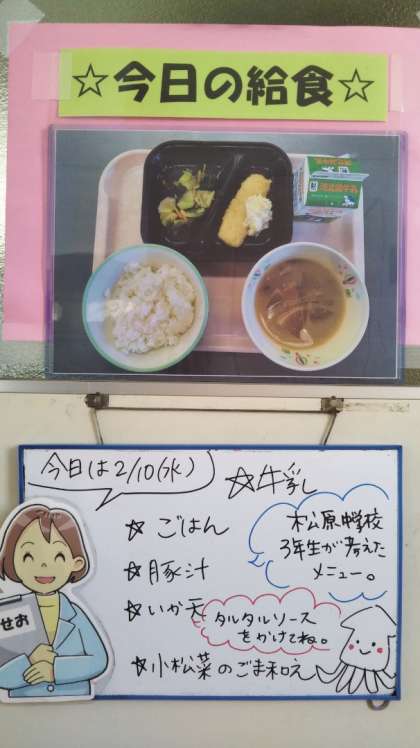 ☆今日の給食☆
今日は2/10(水)
☆牛乳
☆ごはん
☆豚汁
☆いか天
☆小松菜のごま和え
松原中学校
3年生が考えた
メニュー。
タルタルソース
をかけてね。
せお